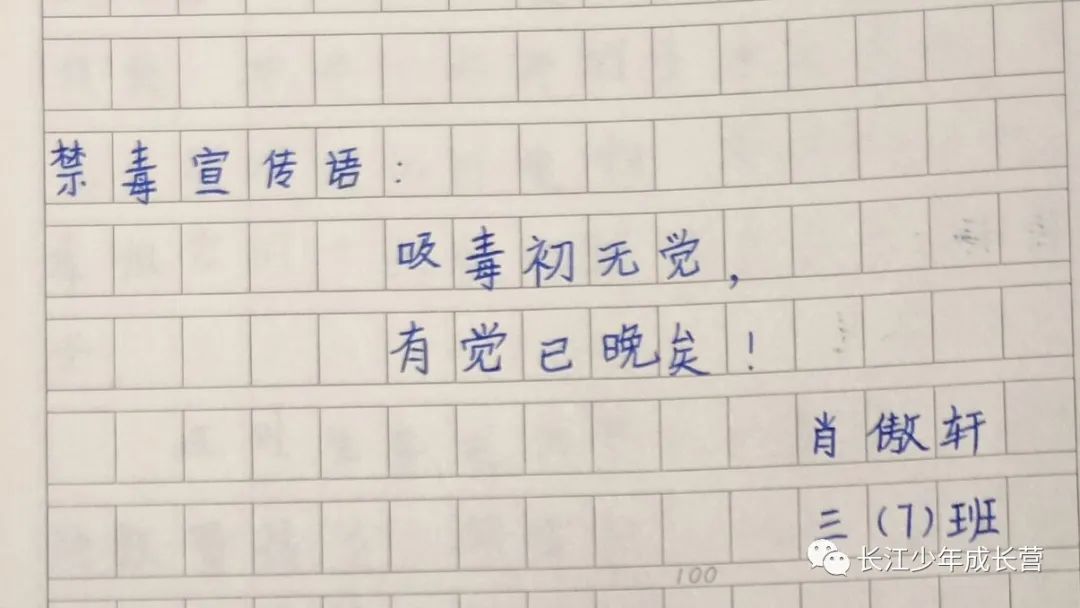 禁毒宣传语:
吸毒初无觉,
有觉已晚矣!
肖傲轩
三(7)班
长江少年成长营
100